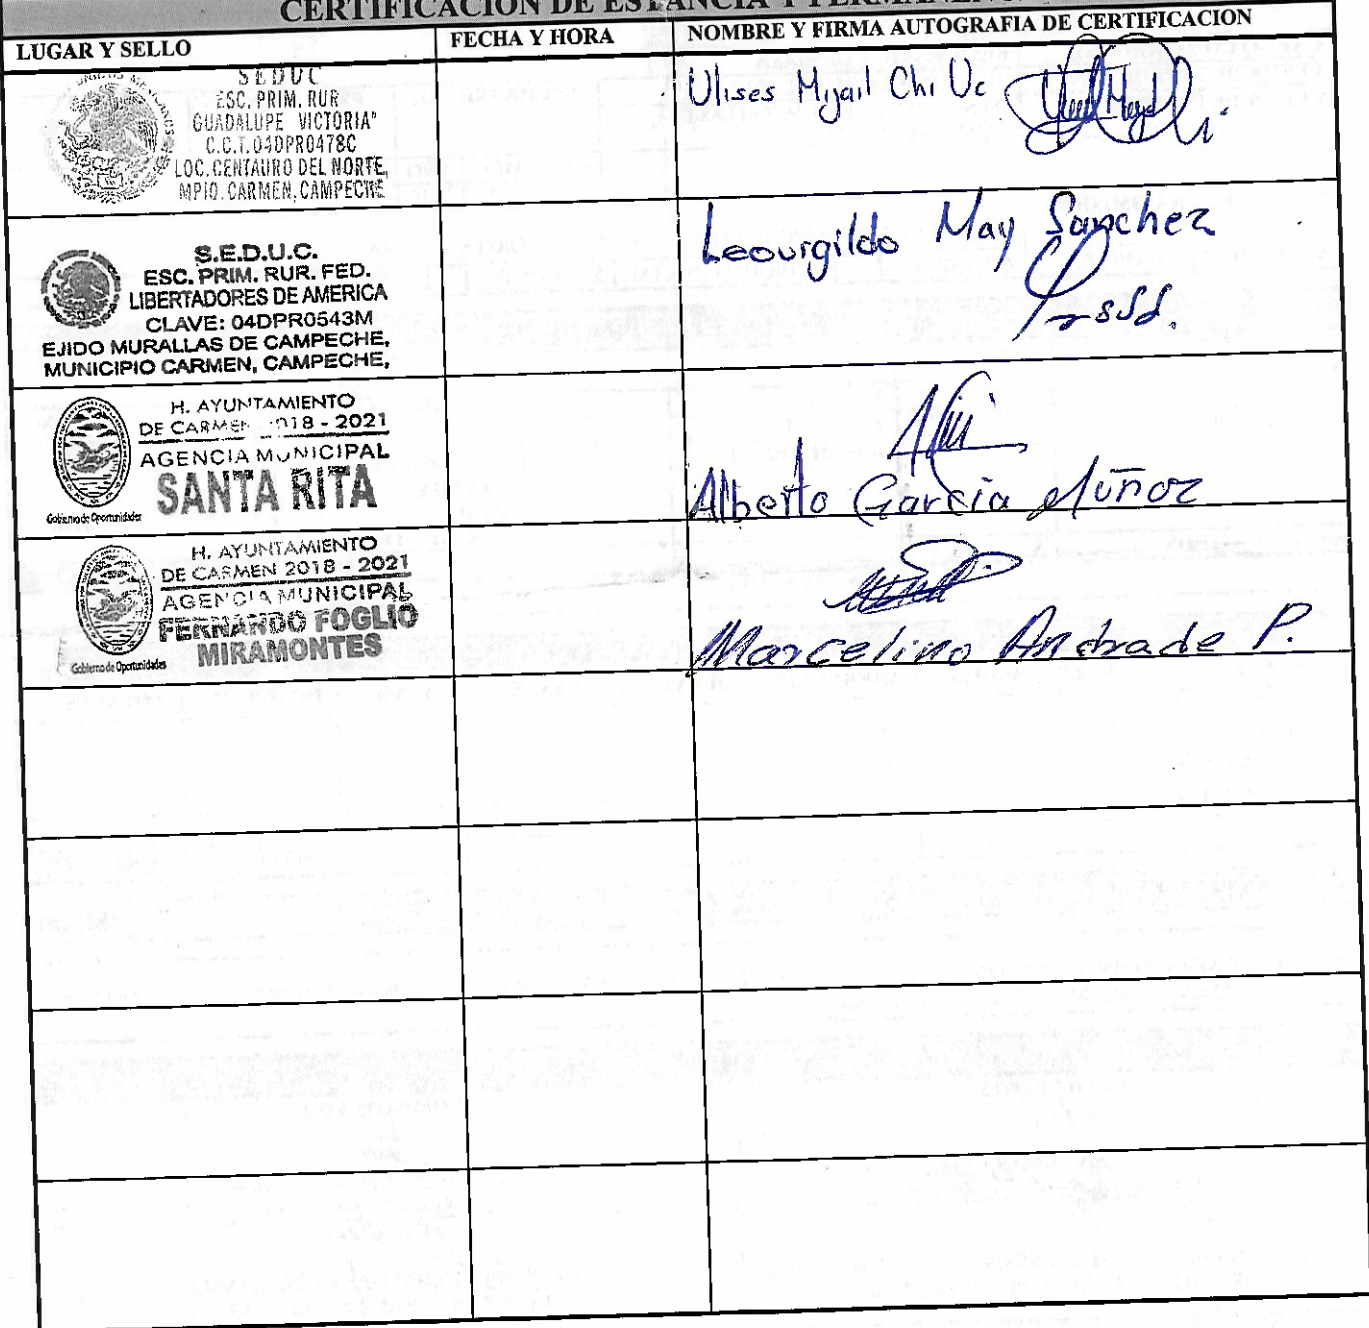 CERTIFICACION DE ESTANCIA Y
LUGAR Y SELLO
FECHA Y HORA
NOMBRE Y FIRMA AUTOGRAFIA DE CERTIFICACION
SEDUC
ESC. PRIM. RUR
GUADALUPE VICTORIA"
C.C.T. 04DPR0478C
LOC. CENTAURO DEL NORTE,
MPIO. CARMEN, CAMPECHE
Ulises Mijail Chi Uc
S.E.D.U.C.
ESC. PRIM. RUR. FED.
LIBERTADORES DE AMERICA
CLAVE: 04DPR0543M
EJIDO MURALLAS DE CAMPECHE,
MUNICIPIO CARMEN, CAMPECHE,
Leovigildo May Sanchez
H. AYUNTAMIENTO
DE CARMEN 2018 - 2021
AGENCIA MUNICIPAL
SANTA RITA
Gobierno de Oportunidades
Alberto Garcia Muñoz
H. AYUNTAMIENTO
DE CARMEN 2018 - 2021
AGENCIA MUNICIPAL
FERNANDO FOGLIO
MIRAMONTES
Gobierno de Oportunidades
Marcelino Andrade P.